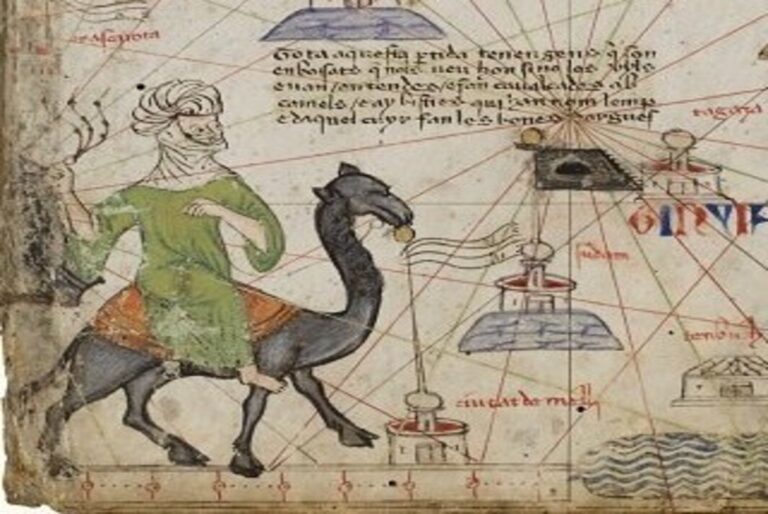 Tota aquesta ptida tenen gens q̃ son
enbosats q̃ nols veu hom sino los uyls
e van en tendes e fan caualcades ab
camels e ay bisties qui han nom lemp
e daquel cuyr fan les bones dargues
tagaza
GINYIA
sudam
tenbuch
ciutat de melly